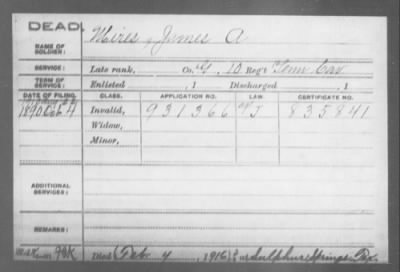 DEAD.
NAME OF SOLDIER: Mires, James A
SERVICE: Late rank, Co. G, 10 Reg't Tenn Cav
TERM OF SERVICE: Enlisted , 1 Discharged , 1
DATE OF FILING. CLASS. APPLICATION NO. LAW. CERTIFICATE NO.
1890 Oct 4 Invalid, 931366 J 835841
Widow,
Minor,
ADDITIONAL SERVICES:
REMARKS:
Died Feby 4, 1916, at Sulphur Springs Tex